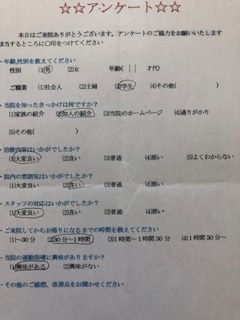 ☆☆アンケート☆☆
本日はご来院ありがとうございます。アンケートのご協力をお願いいたします
当するところに〇印をつけてください
・年齢,性別を教えてください
性別 (1)男 (2)女 年齢( )才代)
ご職業 (1)社会人 (2)主婦 (3)学生 (4)その他( )
・当院を知ったきっかけは何ですか?
(1)家族の紹介 (2)知人の紹介 (3)当院のホームページ (4)通りがかり
(5)その他( )
・治療内容はいかがでしたか?
(1)大変良い (2)良い (3)普通 (4)悪い (5)よくわからない
・院内の雰囲気はいかがでしたか?
(1)大変良い (2)良い (3)普通 (4)悪い
・スタッフの対応はいかがでしたか?
(1)大変良い (2)良い (3)普通 (4)悪い
・ご来院してからお帰りになるまでの時間を教えてください
(1)~30分 (2)30分~1時間 (3)1時間~1時間30分 (4)1時間30分~
・当院の運動指導に興味がありますか?
(1)興味がある (2)興味がない
・その他のご感想、改善点をお聞かせください